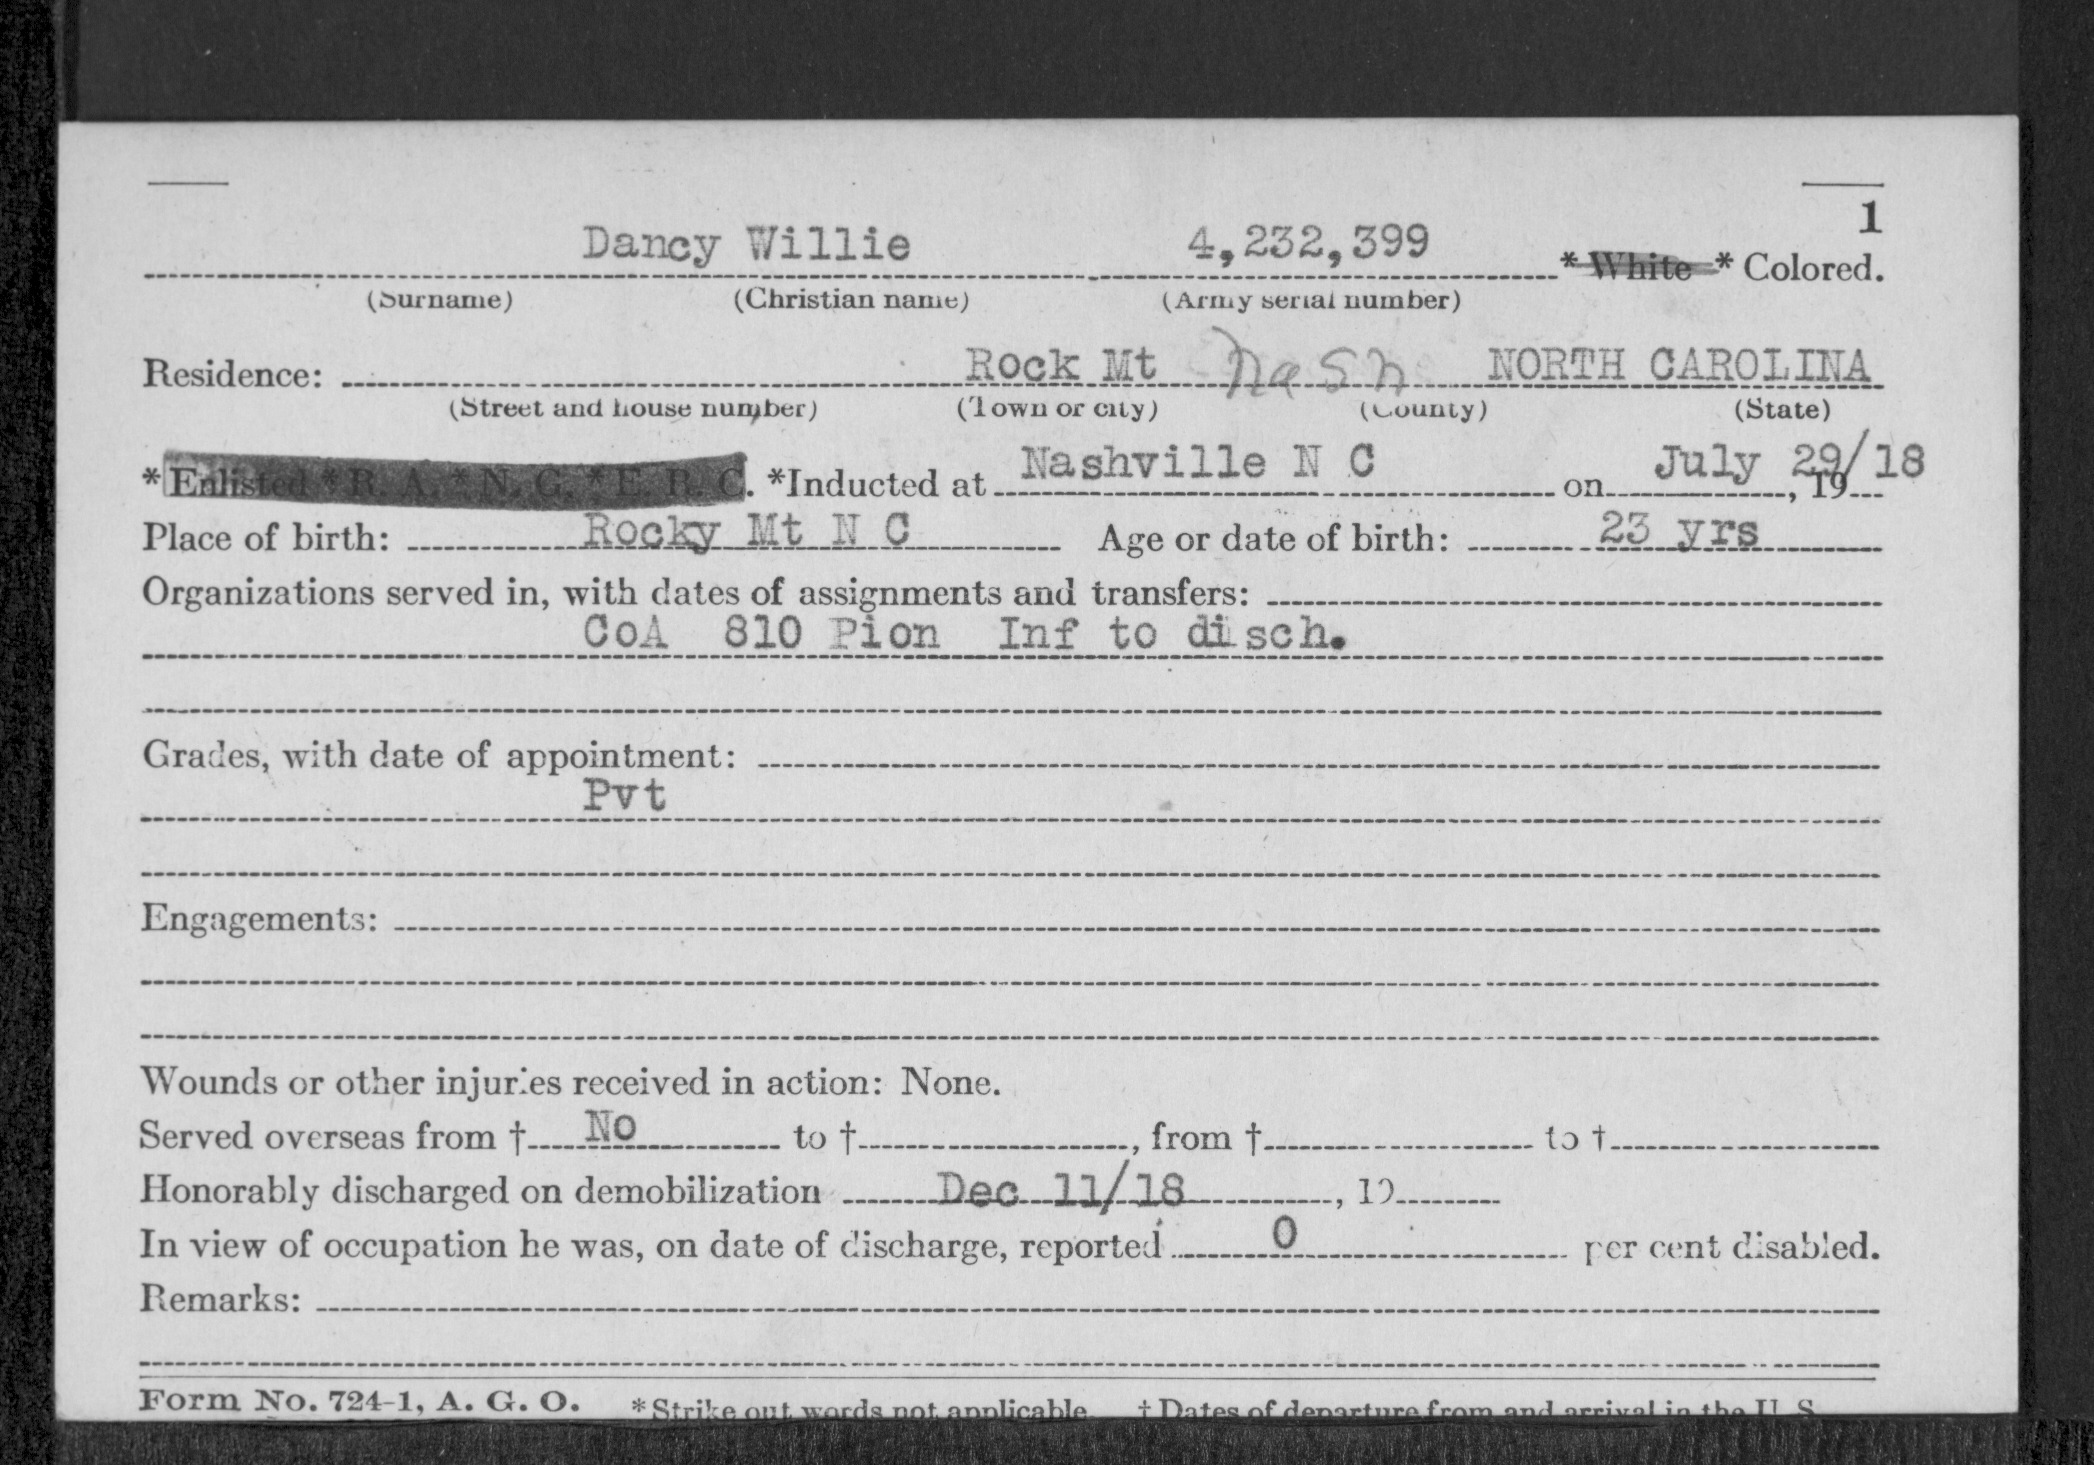 1
Dancy Willie 4,232,399 * White * Colored.
(Surname) (Christian name) (Army serial number)
Residence: Rock Mt Nash NORTH CAROLINA
(Street and house number) (Town or city) (County) (State)
* Enlisted * R. A. * N. G. * E. R. C. *Inducted at Nashville N C on July 29/18, 19
Place of birth: Rocky Mt N C Age or date of birth: 23 yrs
Organizations served in, with dates of assignments and transfers:
CoA 810 Pion Inf to disch.
Grades, with date of appointment:
Pvt
Engagements:
Wounds or other injuries received in action: None.
Served overseas from † No to †, from † to †
Honorably discharged on demobilization Dec 11/18, 19
In view of occupation he was, on date of discharge, reported 0 per cent disabled.
Remarks:
Form No. 724-1, A. G. O. *Strike out words not applicable. †Dates of departure from and arrival in the U. S.